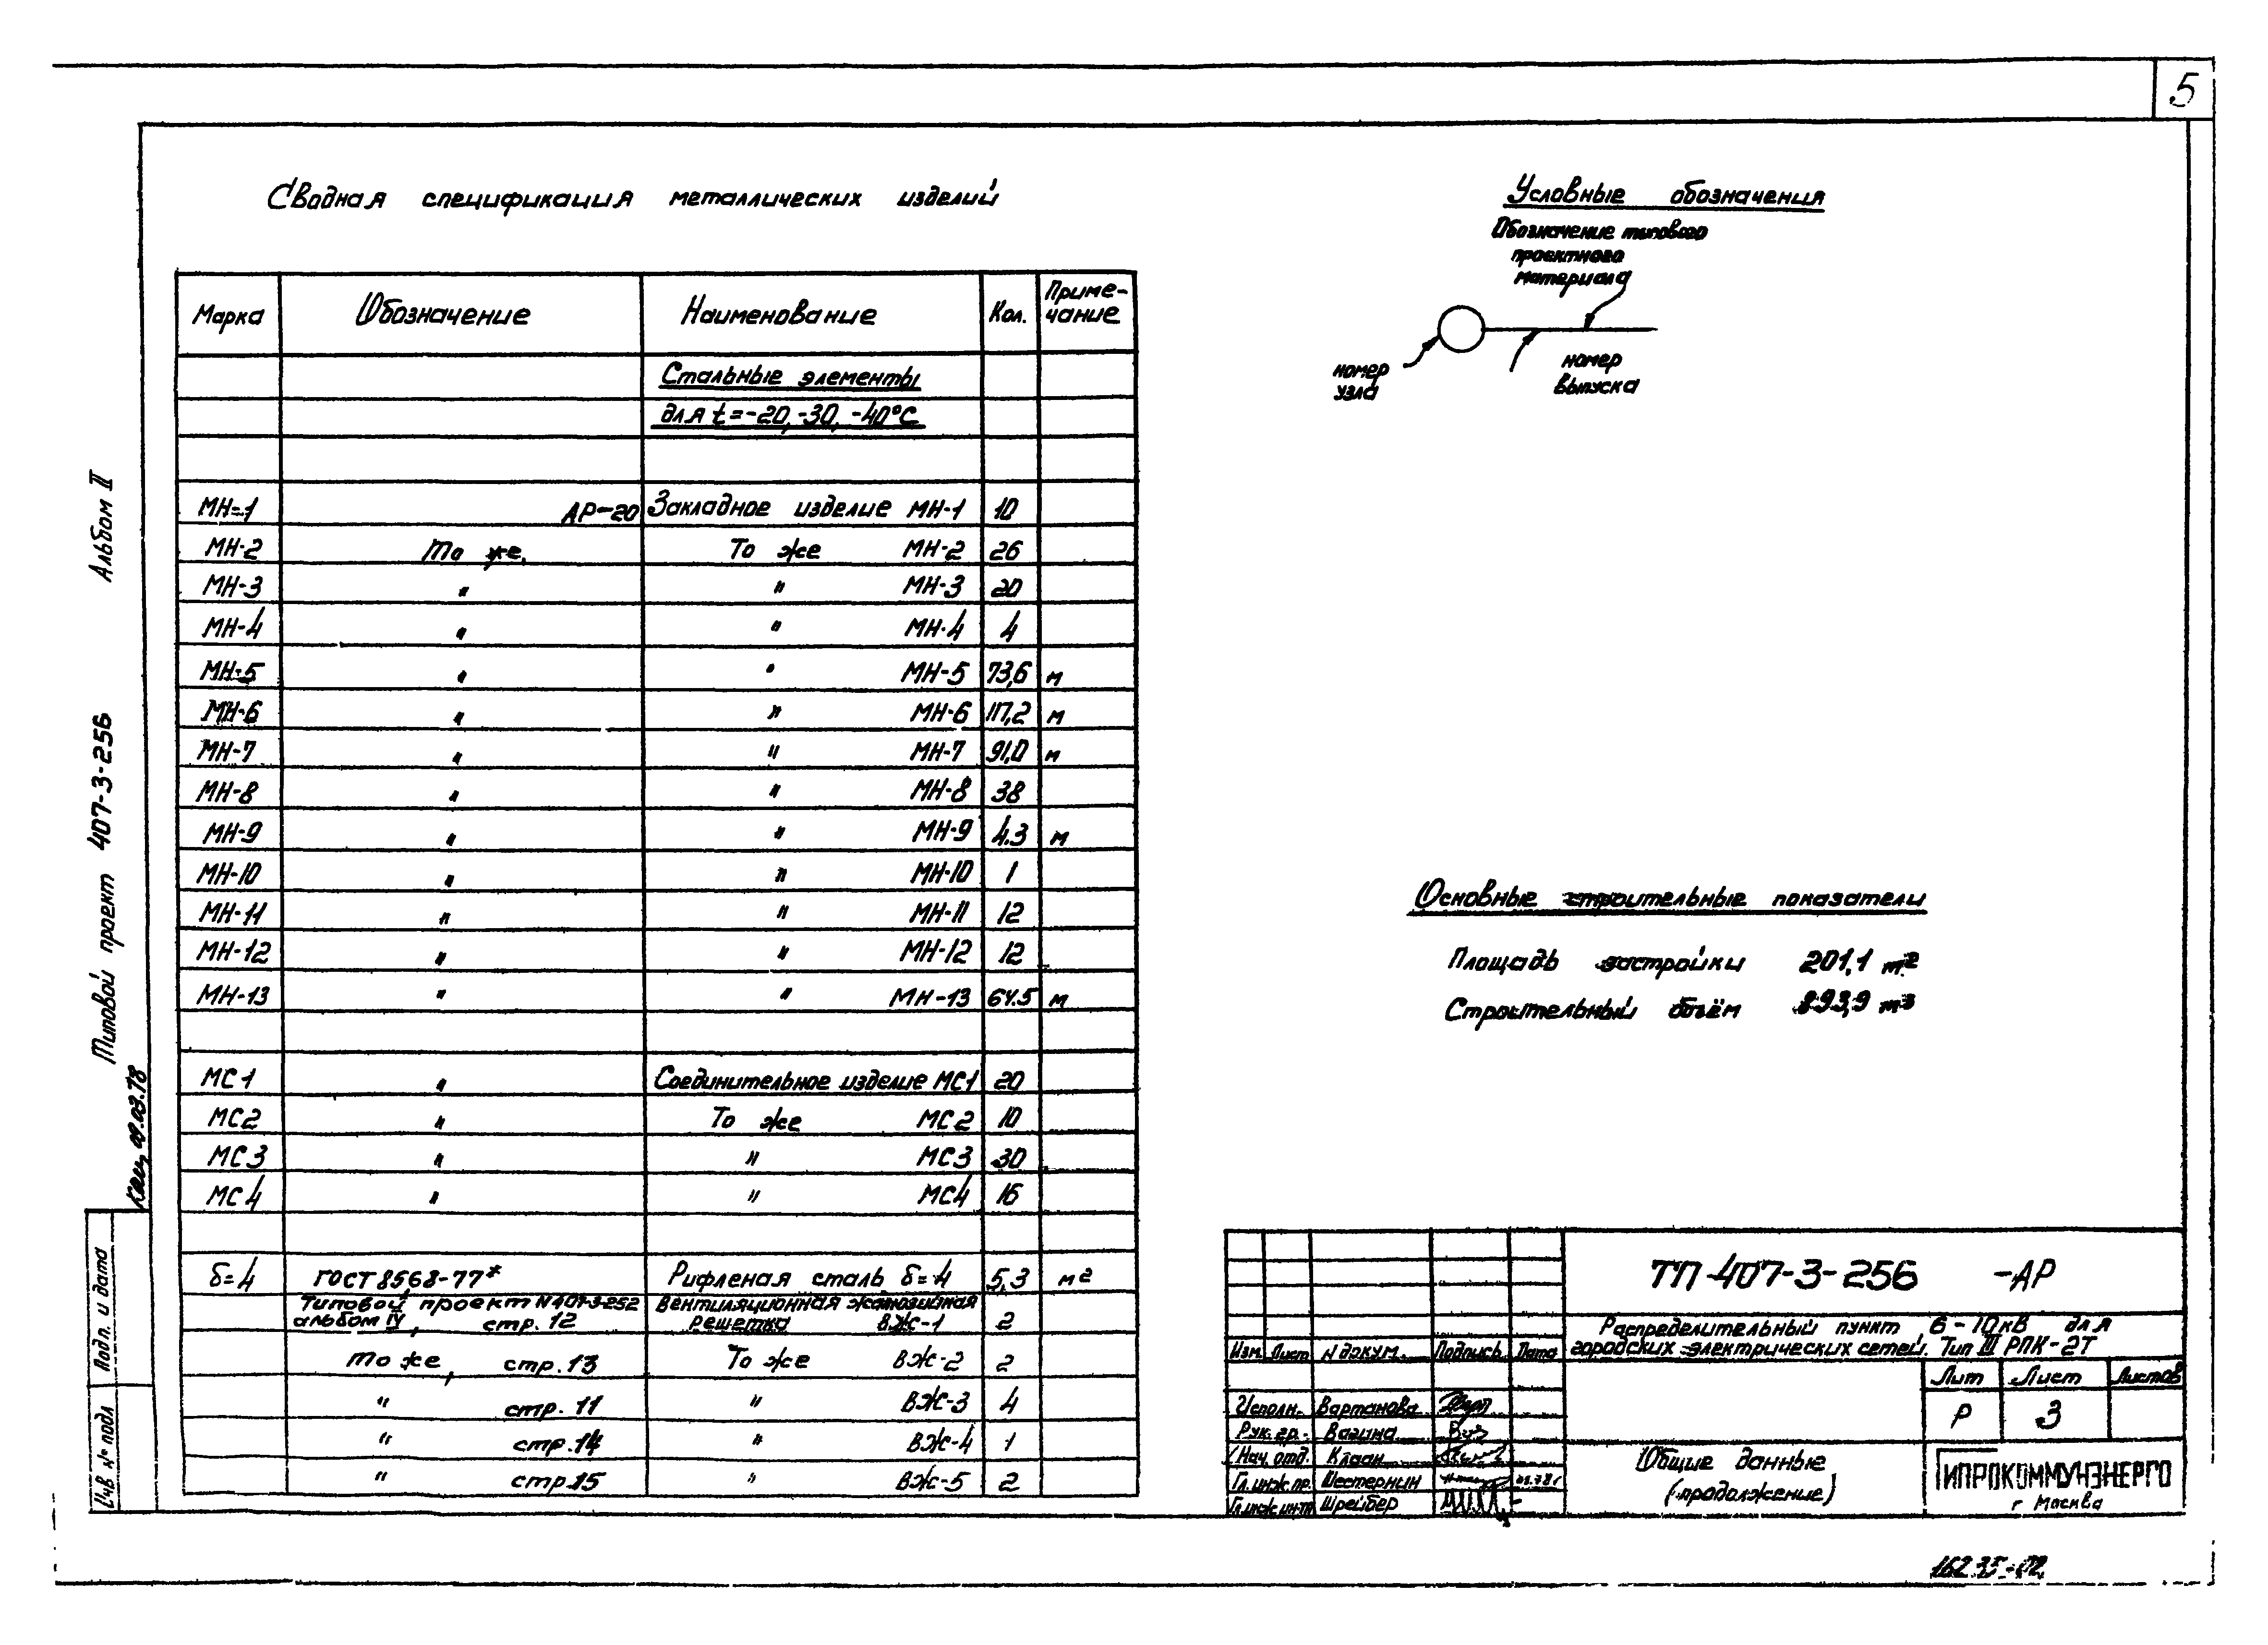 5
Сводная спецификация металлических изделий
Марка Обозначение Наименование Кол. Приме-
чание
Стальные элементы
для t=-20,-30,-40°С
МН-1 АР-20 Закладное изделие МН-1 10
МН-2 То же, То же МН-2 26
МН-3 " " МН-3 20
МН-4 " " МН-4 4
МН-5 " " МН-5 73,6 м
МН-6 " " МН-6 117,2 м
МН-7 " " МН-7 91,0 м
МН-8 " " МН-8 38
МН-9 " " МН-9 4.3 м
МН-10 " " МН-10 1
МН-11 " " МН-11 12
МН-12 " " МН-12 12
МН-13 " " МН-13 64.5 м
МС1 " Соединительное изделие МС1 20
МС2 " То же МС2 10
МС3 " " МС3 30
МС4 " " МС4 16
δ=4 ГОСТ 8568-77* Рифленая сталь δ=4 5,3 м2
Типовой проект N407-3-252 Вентиляционная жалюзийная
альбом IV, стр. 12 решетка ВЖ-1 2
То же, стр. 13 То же ВЖ-2 2
" стр. 11 " ВЖ-3 4
" стр. 14 " ВЖ-4 1
" стр. 15 " ВЖ-5 2
Условные обозначения
Обозначение типового
проектного
материала
номер
узла
номер
выпуска
Основные строительные показатели
Площадь застройки 201,1 м2
Строительный объём 893,9 м3
Альбом II
Типовой проект 407-3-256
09.03.78
Подп. и дата
Инв № подл
ТП 407-3-256 -АР
Распределительный пункт 6-10кВ для
городских электрических сетей. Тип III РПК-2Т
Изм. Лист N докум. Подпись Дата
Лит Лист Листов
Р 3
Исполн. Вартанова
Рук. гр. Вагина
Нач. отд. Клаан
Гл.инж.пр. Шестернин
Гл.инж.ин-та Шрейбер
Общие данные
(продолжение)
ГИПРОКОММУНЭНЕРГО
г Москва
16235-02